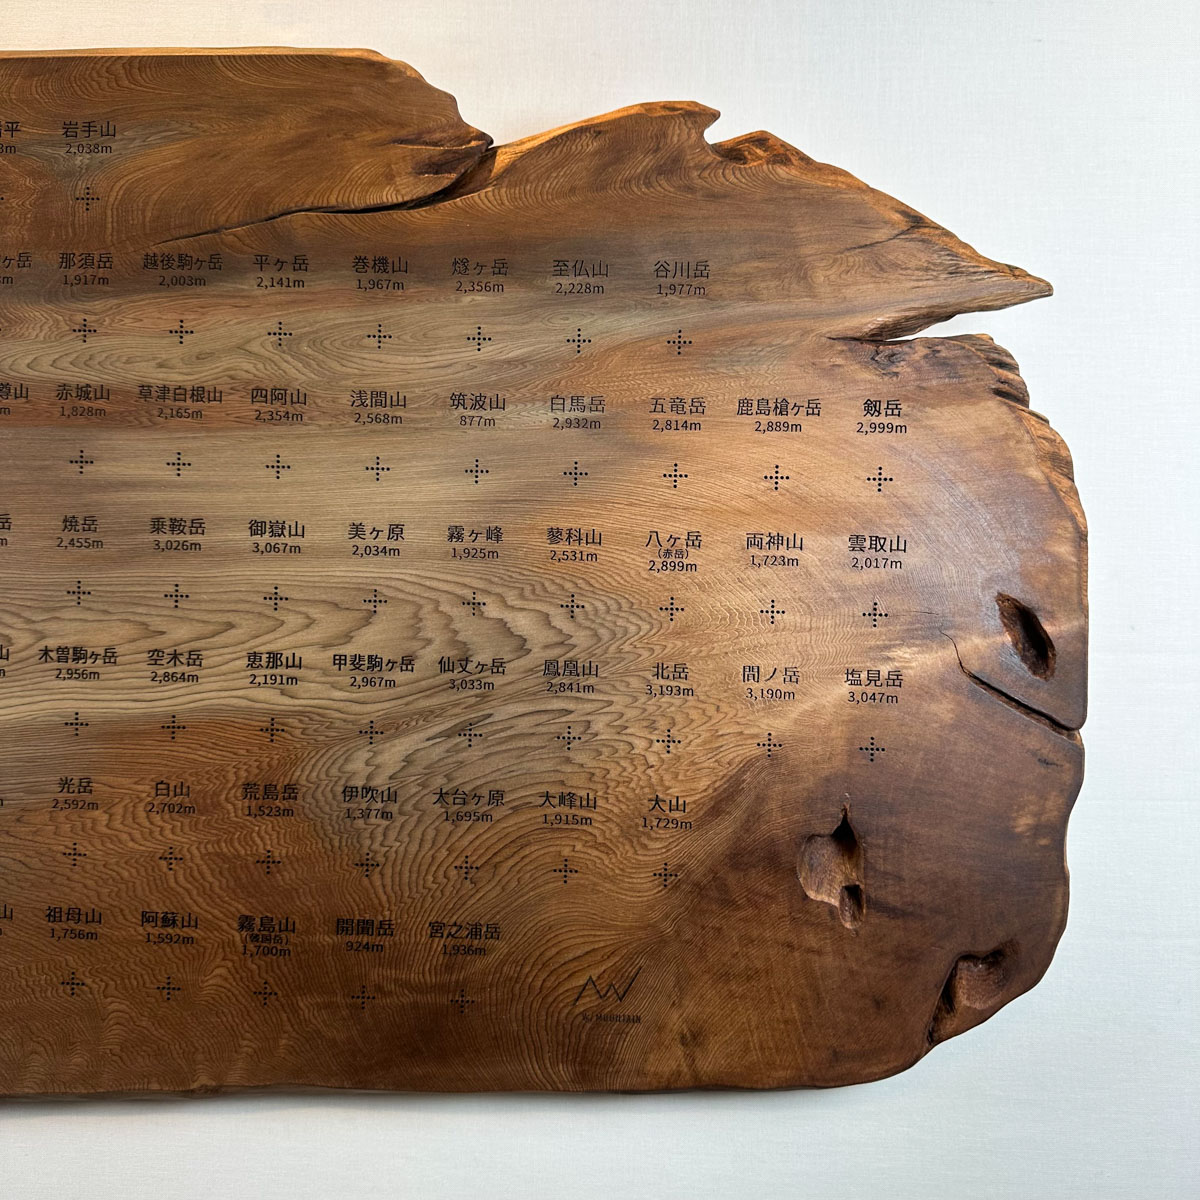 平 岩手山
3m 2,038m
ヶ岳 那須岳 越後駒ヶ岳 平ヶ岳 巻機山 燧ヶ岳 至仏山 谷川岳
m 1,917m 2,003m 2,141m 1,967m 2,356m 2,228m 1,977m
山 赤城山 草津白根山 四阿山 浅間山 筑波山 白馬岳 五竜岳 鹿島槍ヶ岳 剱岳
m 1,828m 2,165m 2,354m 2,568m 877m 2,932m 2,814m 2,889m 2,999m
岳 焼岳 乗鞍岳 御嶽山 美ヶ原 霧ヶ峰 蓼科山 八ヶ岳 両神山 雲取山
(赤岳)
m 2,455m 3,026m 3,067m 2,034m 1,925m 2,531m 2,899m 1,723m 2,017m
山 木曽駒ヶ岳 空木岳 恵那山 甲斐駒ヶ岳 仙丈ヶ岳 鳳凰山 北岳 間ノ岳 塩見岳
m 2,956m 2,864m 2,191m 2,967m 3,033m 2,841m 3,193m 3,190m 3,047m
光岳 白山 荒島岳 伊吹山 大台ヶ原 大峰山 大山
2,592m 2,702m 1,523m 1,377m 1,695m 1,915m 1,729m
山 祖母山 阿蘇山 霧島山 開聞岳 宮之浦岳
(韓国岳)
1,756m 1,592m 1,700m 924m 1,936m
MOUNTAIN